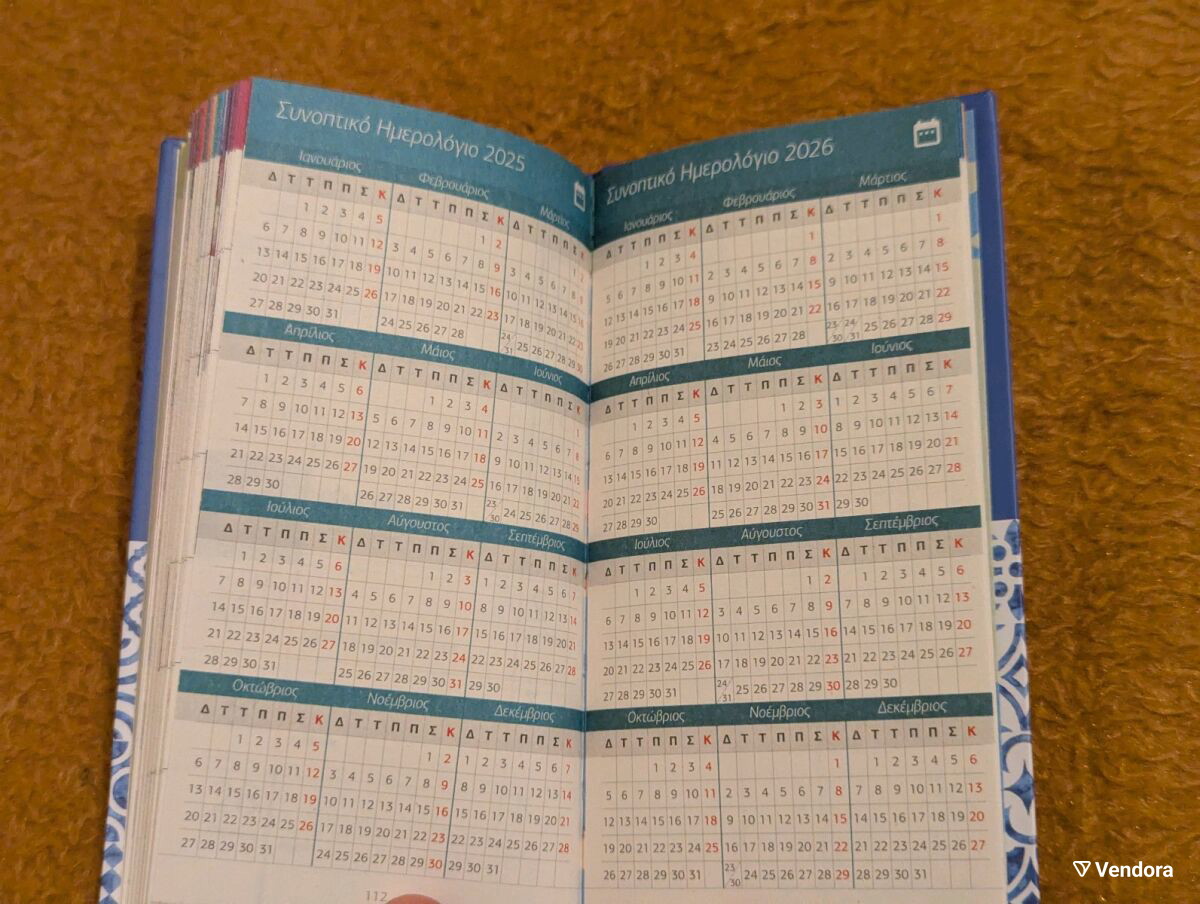 Συνοπτικό Ημερολόγιο 2025
Ιανουάριος Φεβρουάριος Μάρτιος
Δ Τ Τ Π Π Σ Κ Δ Τ Τ Π Π Σ Κ Δ Τ Τ Π Π Σ Κ
1 2 3 4 5 1 2 1 2
6 7 8 9 10 11 12 3 4 5 6 7 8 9 3 4 5 6 7 8 9
13 14 15 16 17 18 19 10 11 12 13 14 15 16 10 11 12 13 14 15 16
20 21 22 23 24 25 26 17 18 19 20 21 22 23 17 18 19 20 21 22 23
27 28 29 30 31 24 25 26 27 28 24/31 25 26 27 28 29 30
Απρίλιος Μάιος Ιούνιος
Δ Τ Τ Π Π Σ Κ Δ Τ Τ Π Π Σ Κ Δ Τ Τ Π Π Σ Κ
1 2 3 4 5 6 1 2 3 4 1
7 8 9 10 11 12 13 5 6 7 8 9 10 11 2 3 4 5 6 7 8
14 15 16 17 18 19 20 12 13 14 15 16 17 18 9 10 11 12 13 14 15
21 22 23 24 25 26 27 19 20 21 22 23 24 25 16 17 18 19 20 21 22
28 29 30 26 27 28 29 30 31 23/30 24 25 26 27 28 29
Ιούλιος Αύγουστος Σεπτέμβριος
Δ Τ Τ Π Π Σ Κ Δ Τ Τ Π Π Σ Κ Δ Τ Τ Π Π Σ Κ
1 2 3 4 5 6 1 2 3 1 2 3 4 5 6 7
7 8 9 10 11 12 13 4 5 6 7 8 9 10 8 9 10 11 12 13 14
14 15 16 17 18 19 20 11 12 13 14 15 16 17 15 16 17 18 19 20 21
21 22 23 24 25 26 27 18 19 20 21 22 23 24 22 23 24 25 26 27 28
28 29 30 31 25 26 27 28 29 30 31 29 30
Οκτώβριος Νοέμβριος Δεκέμβριος
Δ Τ Τ Π Π Σ Κ Δ Τ Τ Π Π Σ Κ Δ Τ Τ Π Π Σ Κ
1 2 3 4 5 1 2 1 2 3 4 5 6 7
6 7 8 9 10 11 12 3 4 5 6 7 8 9 8 9 10 11 12 13 14
13 14 15 16 17 18 19 10 11 12 13 14 15 16 15 16 17 18 19 20 21
20 21 22 23 24 25 26 17 18 19 20 21 22 23 22 23 24 25 26 27 28
27 28 29 30 31 24 25 26 27 28 29 30 29 30 31
112
Συνοπτικό Ημερολόγιο 2026
Ιανουάριος Φεβρουάριος Μάρτιος
Δ Τ Τ Π Π Σ Κ Δ Τ Τ Π Π Σ Κ Δ Τ Τ Π Π Σ Κ
1 2 3 4 1 1
5 6 7 8 9 10 11 2 3 4 5 6 7 8 2 3 4 5 6 7 8
12 13 14 15 16 17 18 9 10 11 12 13 14 15 9 10 11 12 13 14 15
19 20 21 22 23 24 25 16 17 18 19 20 21 22 16 17 18 19 20 21 22
26 27 28 29 30 31 23 24 25 26 27 28 23/30 24/31 25 26 27 28 29
Απρίλιος Μάιος Ιούνιος
Δ Τ Τ Π Π Σ Κ Δ Τ Τ Π Π Σ Κ Δ Τ Τ Π Π Σ Κ
1 2 3 4 5 1 2 3 1 2 3 4 5 6 7
6 7 8 9 10 11 12 4 5 6 7 8 9 10 8 9 10 11 12 13 14
13 14 15 16 17 18 19 11 12 13 14 15 16 17 15 16 17 18 19 20 21
20 21 22 23 24 25 26 18 19 20 21 22 23 24 22 23 24 25 26 27 28
27 28 29 30 25 26 27 28 29 30 31 29 30
Ιούλιος Αύγουστος Σεπτέμβριος
Δ Τ Τ Π Π Σ Κ Δ Τ Τ Π Π Σ Κ Δ Τ Τ Π Π Σ Κ
1 2 3 4 5 1 2 1 2 3 4 5 6
6 7 8 9 10 11 12 3 4 5 6 7 8 9 7 8 9 10 11 12 13
13 14 15 16 17 18 19 10 11 12 13 14 15 16 14 15 16 17 18 19 20
20 21 22 23 24 25 26 17 18 19 20 21 22 23 21 22 23 24 25 26 27
27 28 29 30 31 24/31 25 26 27 28 29 30 28 29 30
Οκτώβριος Νοέμβριος Δεκέμβριος
Δ Τ Τ Π Π Σ Κ Δ Τ Τ Π Π Σ Κ Δ Τ Τ Π Π Σ Κ
1 2 3 4 1 1 2 3 4 5 6
5 6 7 8 9 10 11 2 3 4 5 6 7 8 7 8 9 10 11 12 13
12 13 14 15 16 17 18 9 10 11 12 13 14 15 14 15 16 17 18 19 20
19 20 21 22 23 24 25 16 17 18 19 20 21 22 21 22 23 24 25 26 27
26 27 28 29 30 31 23/30 24 25 26 27 28 29 28 29 30 31
Vendora